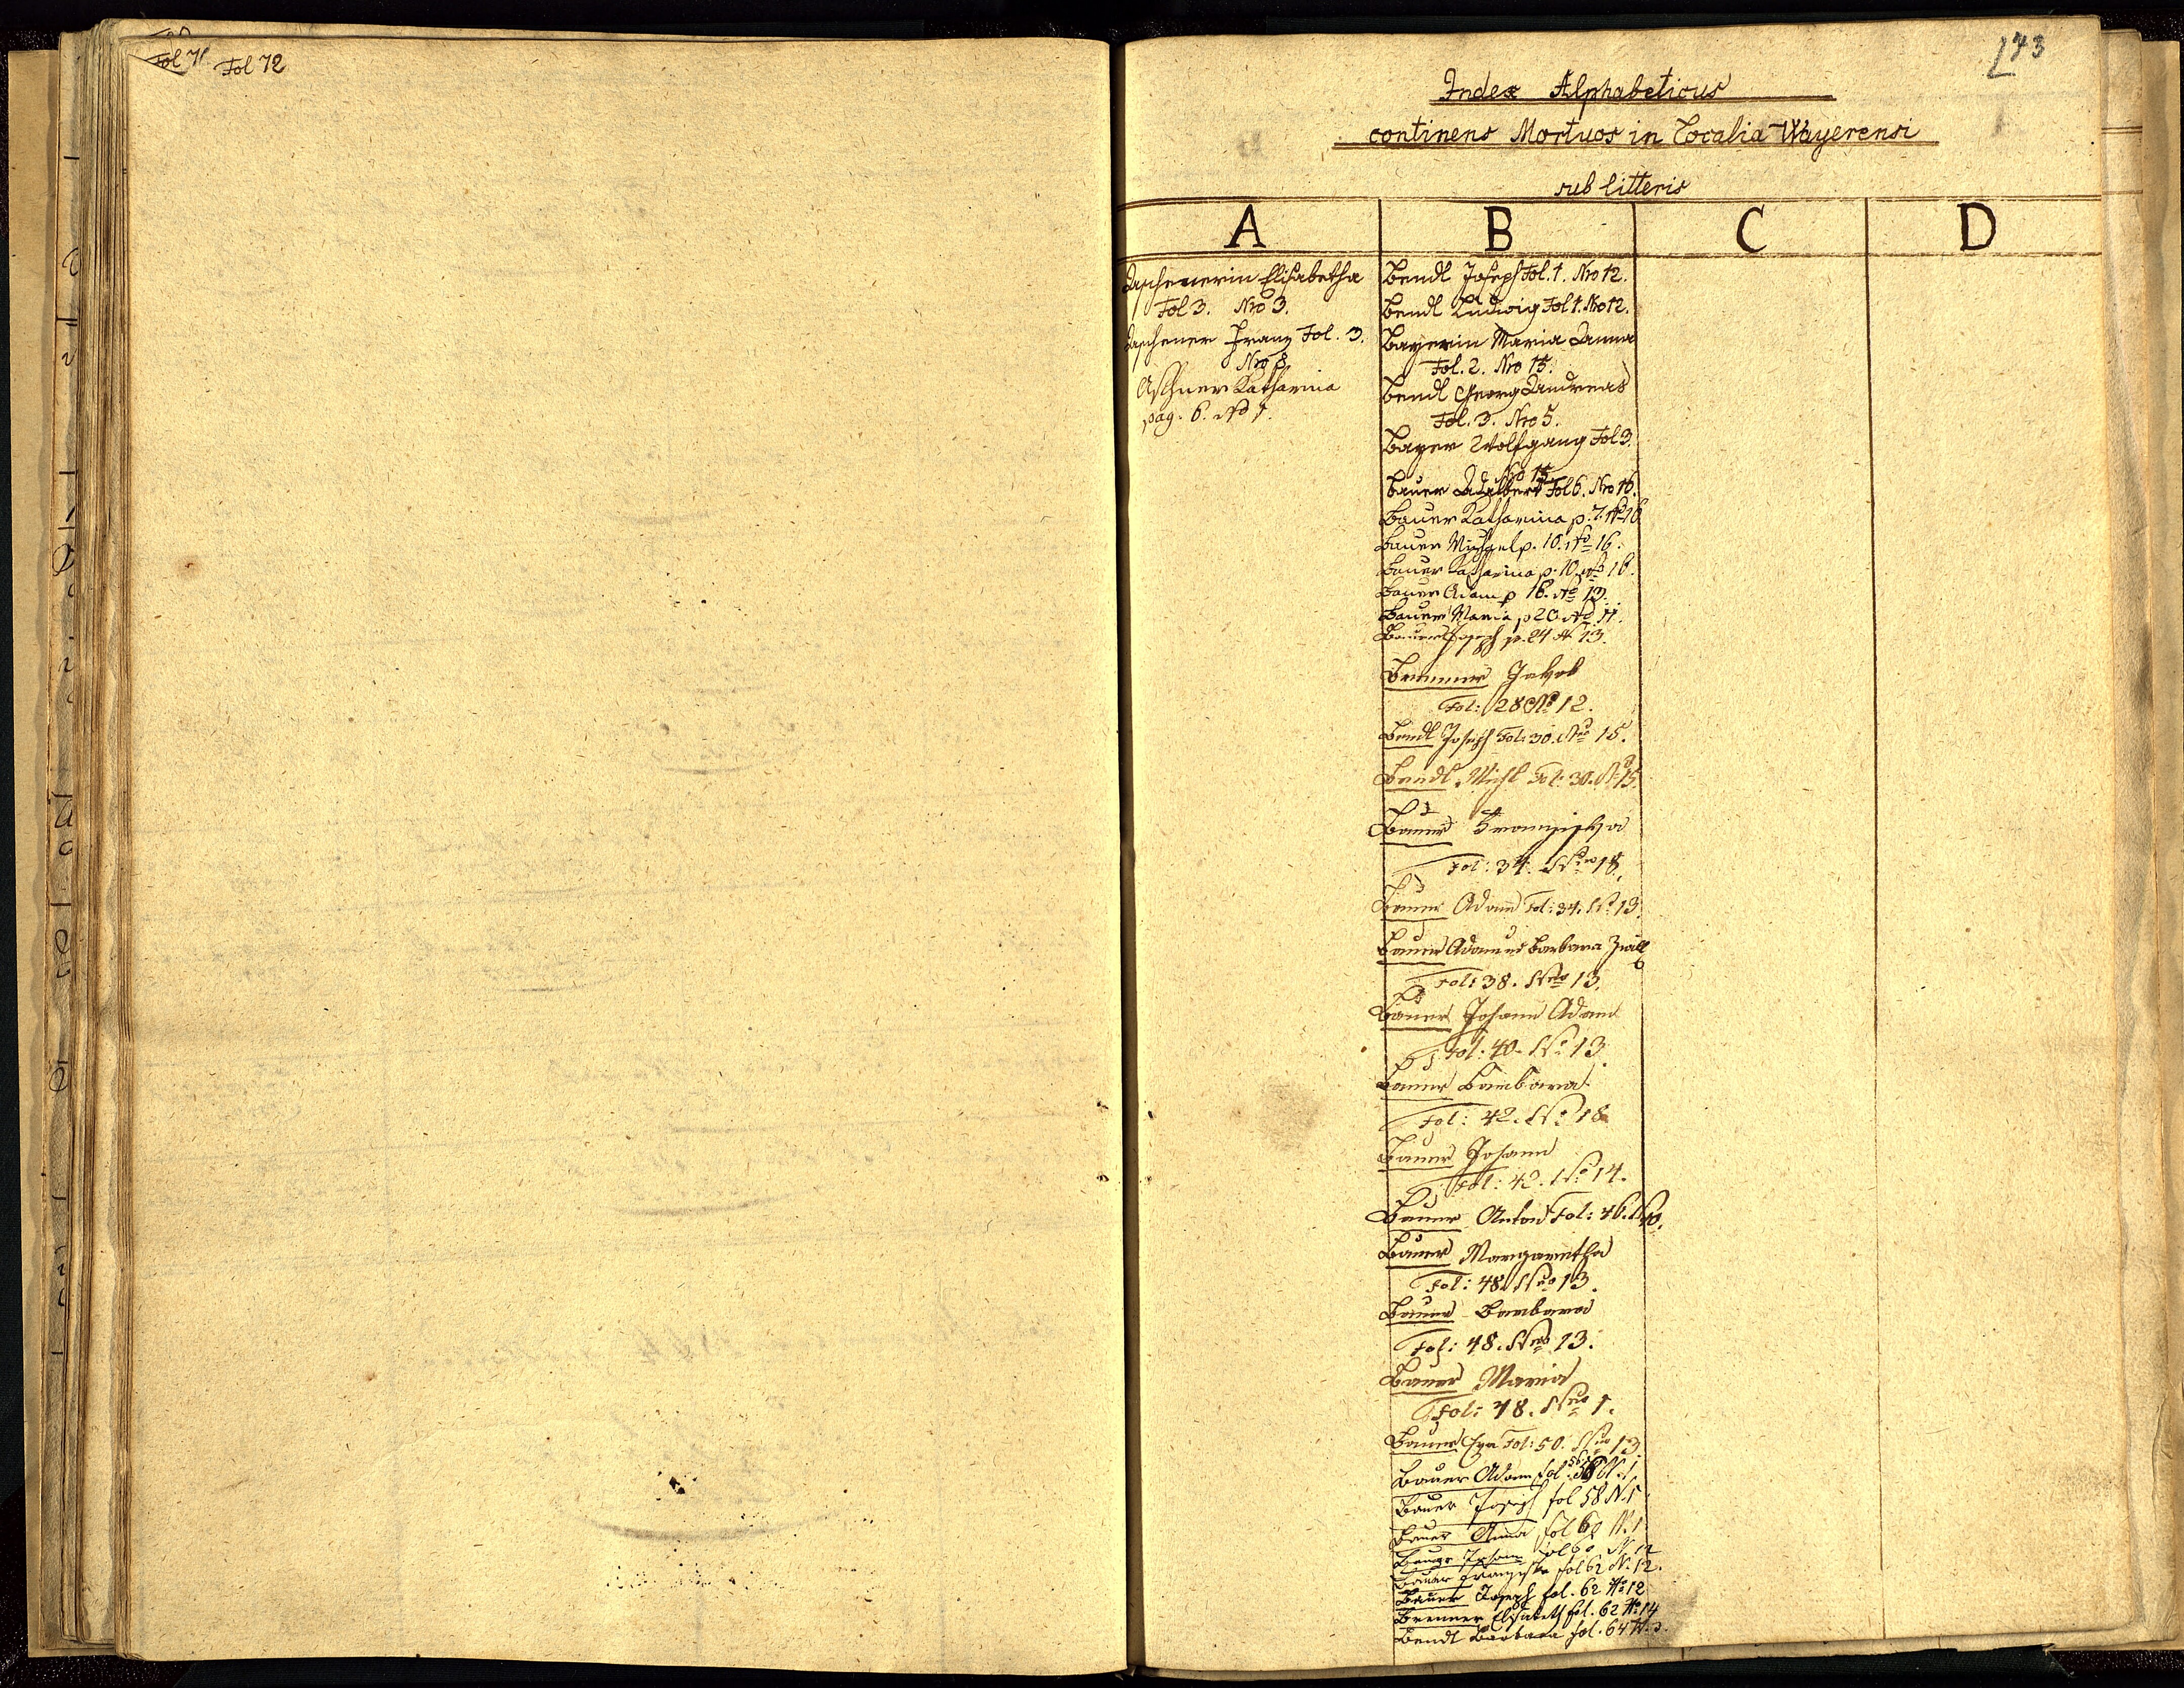 Fol 71 Fol 72
73
Index Alphabeticus
continens Mortuos in Localia Wayerensi
sub litteris
A B C D
Aschenerin Elisabetha
Fol 3. Nro 3.
Aschener Franz Fol. 3.
Nro 8.
Aschner Katharina
pag. 6. No 1.
Bendl Joseph Fol. 1. Nro 12.
Bendl Ludwig Fol 1. Nro 12.
Bayerin Maria Anna
Fol. 2. Nro 15.
Bendl Georg Andreas
Fol. 3. Nro 5.
Bayer Wolfgang Fol 3.
Nro 15.
Bauer Adalbert Fol 6. Nro 16.
Bauer Katharina p. 7. No 16
Bauer Michael p. 10. No 16.
Bauer Katharina p. 10. No 16.
Bauer Adam p 16. No 13.
Bauer Maria p 20. No 11.
Bauer Joseph p. 24 N 13.
Brenner Jakob
Fol: 28 No 12.
Bendl Joseph Fol: 30. Nro 15.
Bendl Michl Fol: 30. No 15.
Bauer Franziska
Fol: 34. Nro 18.
Bauer Adam Fol: 34. No 13.
Bauer Adam et Barbara Zwill
Fol: 38. Nro 13.
Bauer Johann Adam
Fol: 40. No 13.
Bauer Barbara
Fol: 42. No 18
Bauer Johann
Fol: 42. No 14.
Bauer Anton Fol: 46.
Bauer Margaretha
Fol: 48. Nro 13.
Bauer Barbara
Fol: 48. Nro 13.
Bauer Maria
Fol: 48. Nro 1.
Bauer Eva Fol: 50. Nro 13.
Bauer Adam fol 56 N. 1.
Bauer Joseph fol 58 N. 1
Bauer Anna fol 60 N. 1
Bauer Johann fol 60 N. 12
Bauer Franziska fol 62 N. 12.
Bauer Joseph fol. 62 No 12
Brenner Elisabeth fol. 62 No 14
Bendl Barbara fol. 64 N. 3.